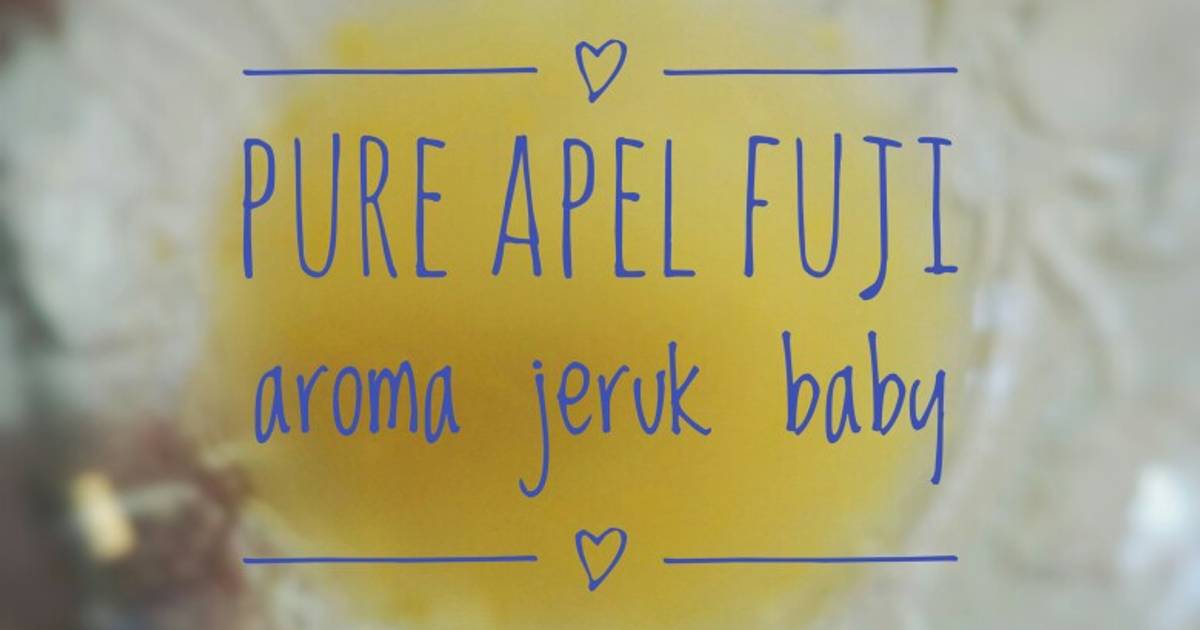 PURE APEL FUJI
aroma jeruk baby